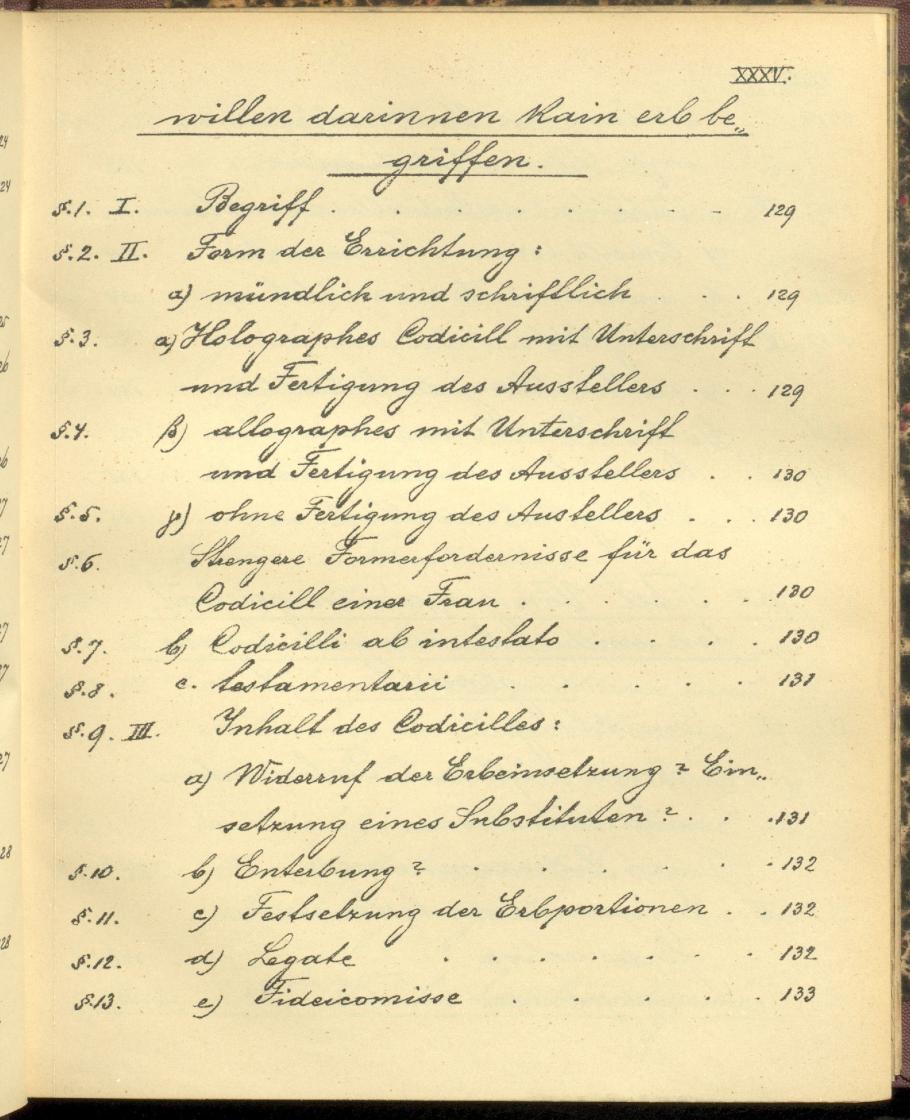 XXXV.
willen darinnen kain erb be„
griffen.
§.1. I. Begriff . . . . . . . 129
§.2. II. Form der Errichtung:
a) mündlich und schriftlich . . . 129
§.3. α) Holographes Codicill mit Unterschrift
und Fertigung des Ausstellers . . . 129
§.4. β) allographes mit Unterschrift
und Fertigung des Ausstellers . . 130
§.5. γ) ohne Fertigung des Austellers . . . 130
§.6. Strengere Formerfordernisse für das
Codicill einer Frau . . . . . 130
§.7. b) Codicilli ab intestato . . . . 130
§.8. c. testamentarii . . . . . 131
§.9. III. Inhalt des Codicilles:
a) Widerruf der Erbeinsetzung? Ein„
setzung eines Substituten? . . . 131
§.10. b) Enterbung? . . . . . . 132
§.11. c) Festsetzung der Erbportionen . . 132
§.12. d) Legate . . . . . . . 132
§.13. e) Fideicomisse . . . . . 133
24
24
25
26
26
27
27
27
27
27
28
28